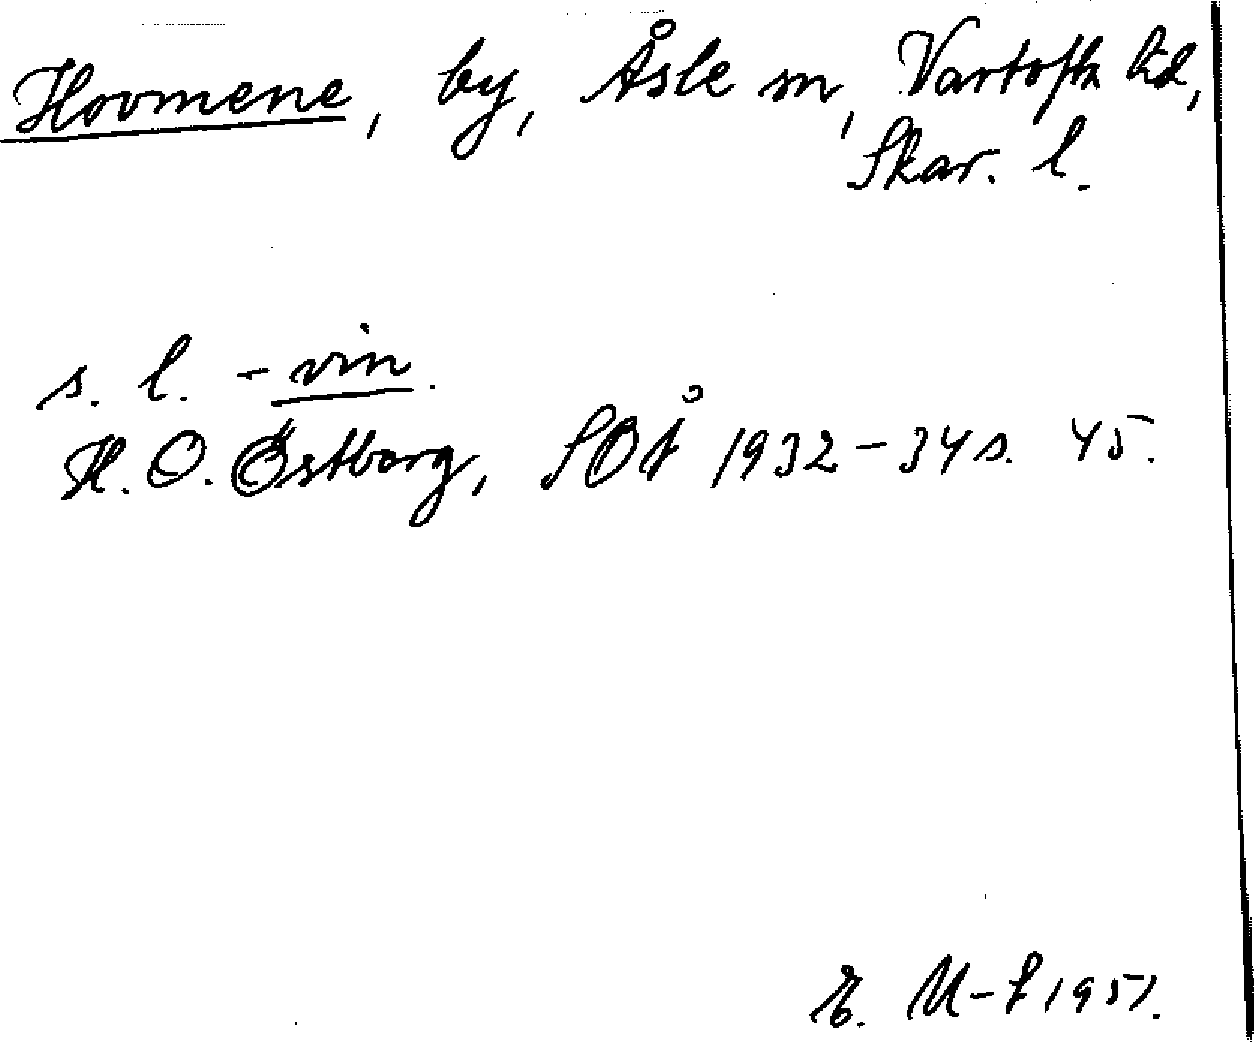 Hovmene, by, Åsle sn, Vartofta hd,
Skar. l.
s. l. - vin.
H. O. Östborg, SOÅ 1932-34 s. 45.
E. M-S 1951.